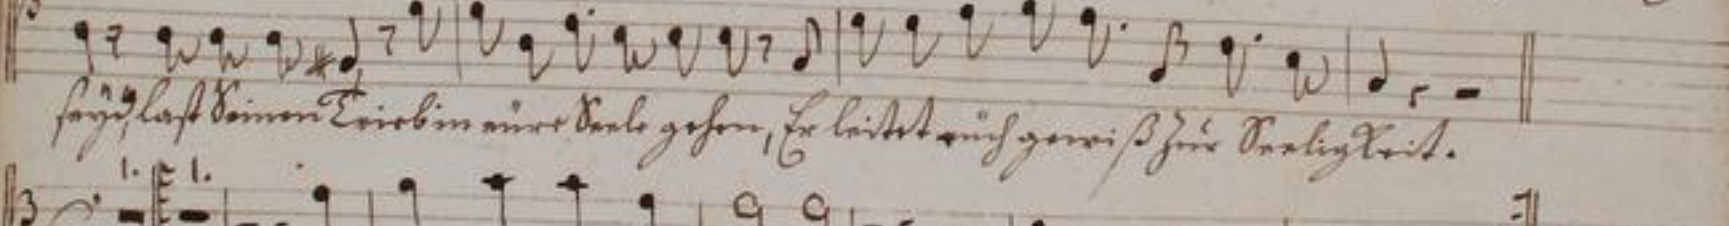 seyd, last Seinen Trieb in eüre Seele gehen, Er leitet eüch gewiß zur Seeligkeit.
1. 1.
3